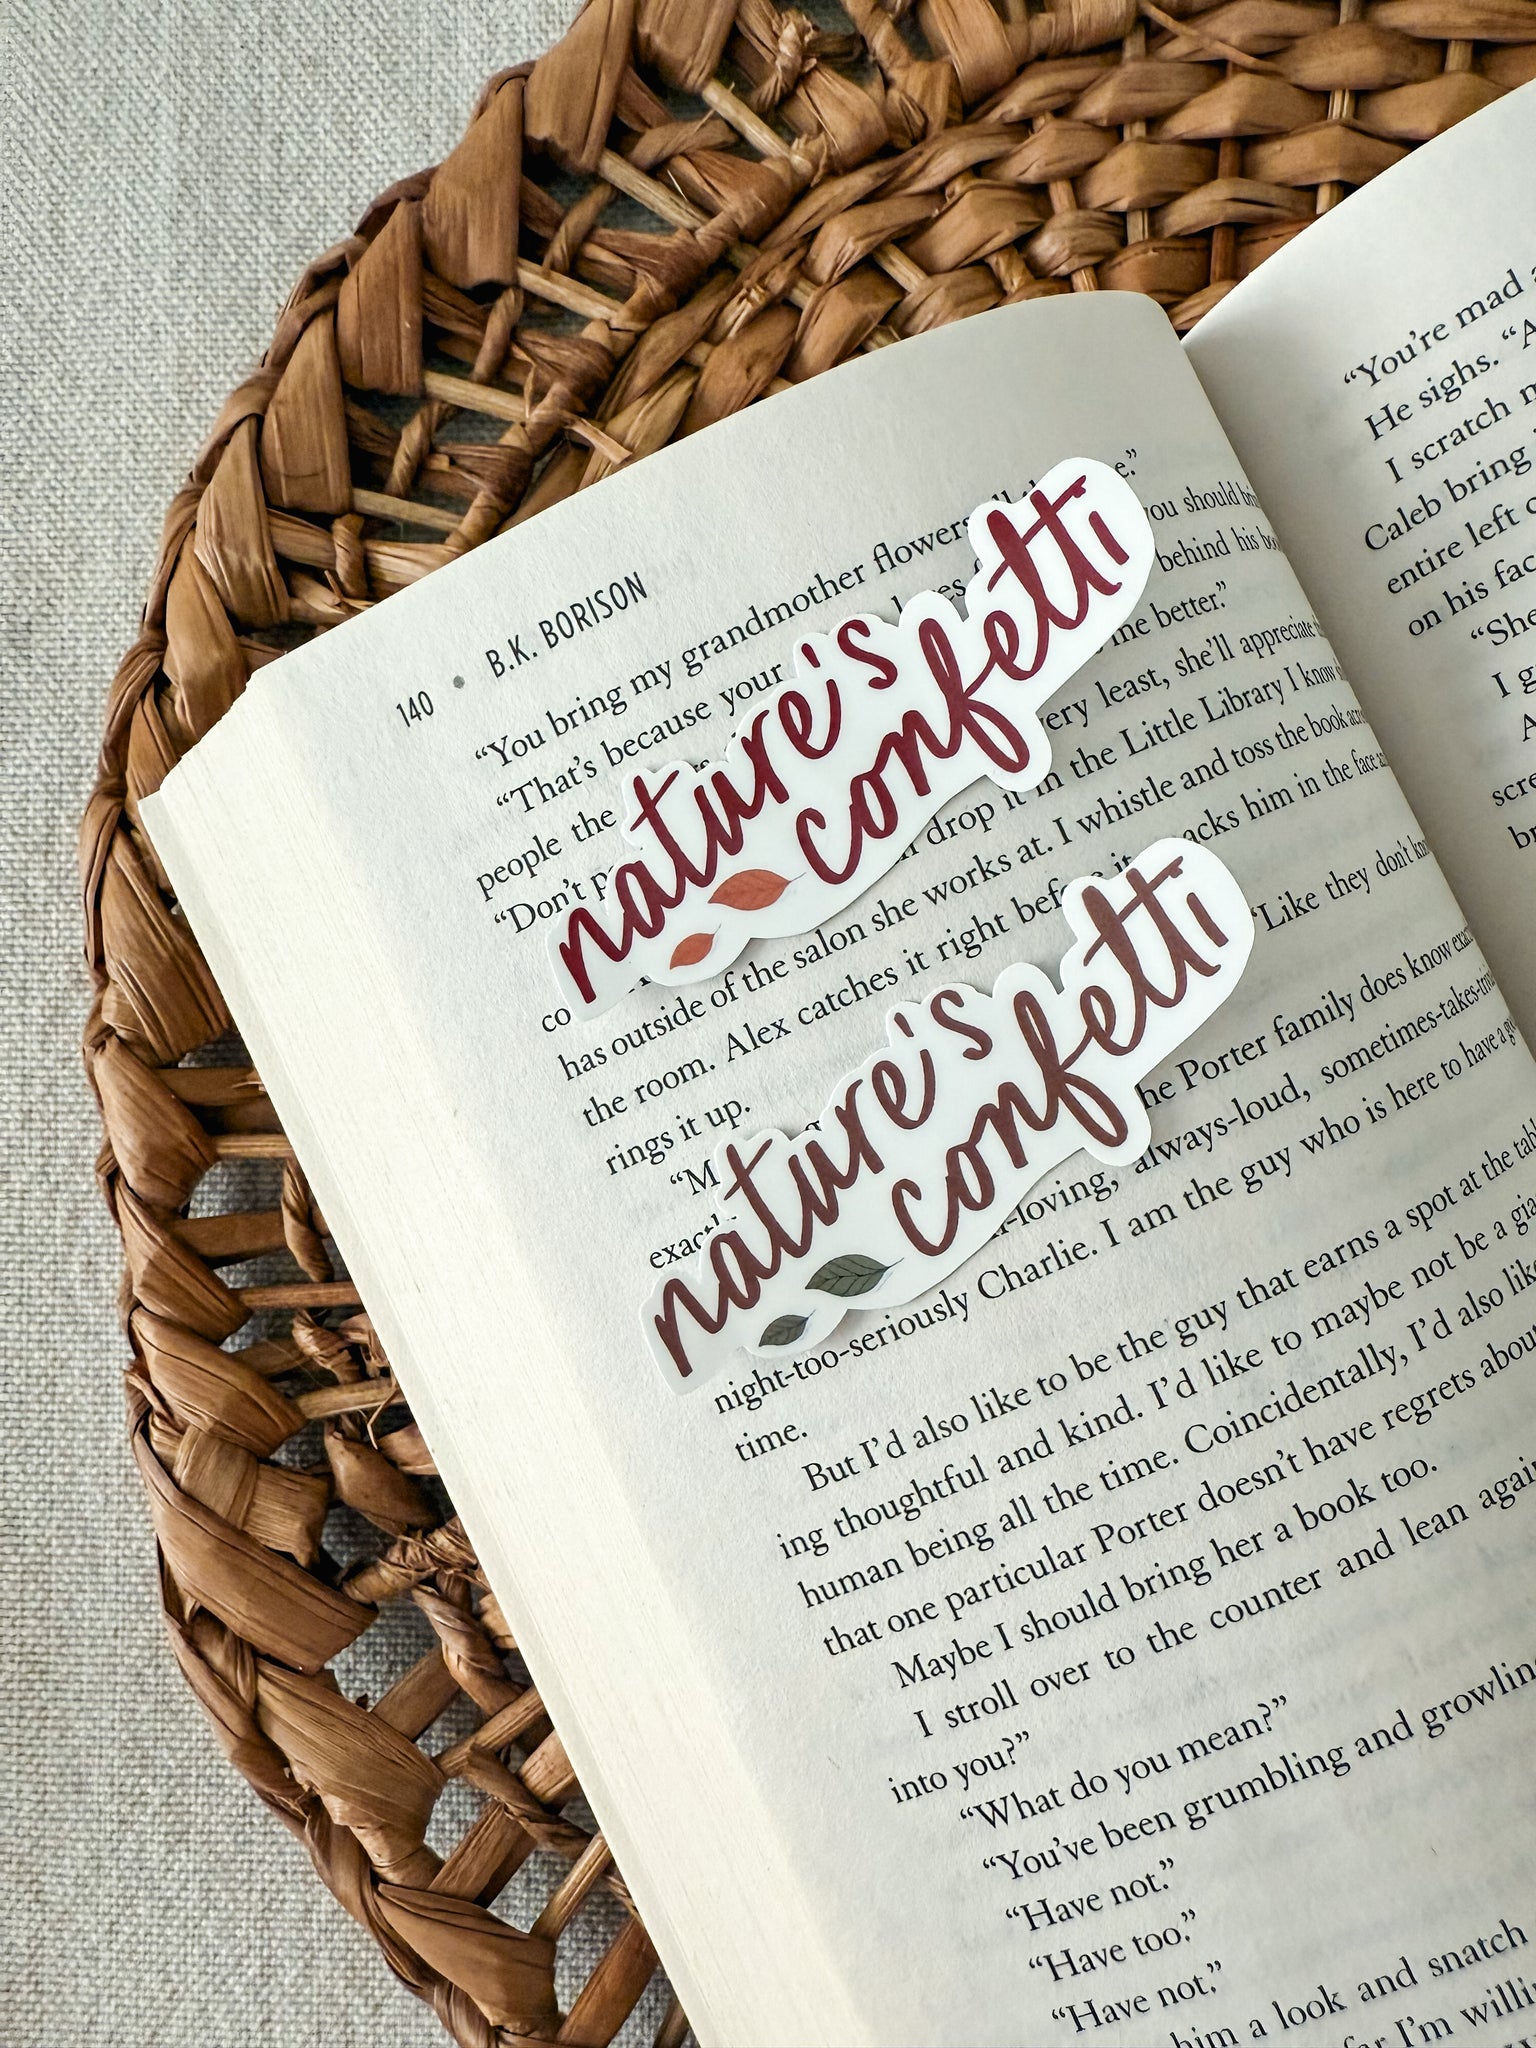 140 • B.K. BORISON
“You bring my grandmother flowers
“That’s because your you should
people the behind his
“Don’t me better.”
very least, she’ll appreciate
co drop it in the Little Library I know
has outside of the salon she works at. I whistle and toss the book
the room. Alex catches it right before it smacks him in the face
rings it up.
“Like they don’t
exactly the Porter family does know
loving, always-loud, sometimes-takes-
night-too-seriously Charlie. I am the guy who is here to have a
time.
But I’d also like to be the guy that earns a spot at the
ing thoughtful and kind. I’d like to maybe not be a
human being all the time. Coincidentally, I’d also like
that one particular Porter doesn’t have regrets about
Maybe I should bring her a book too.
I stroll over to the counter and lean
into you?”
“What do you mean?”
“You’ve been grumbling and growling
“Have not.”
“Have too.”
“Have not.”
him a look and snatch
I’m
nature's
confetti
nature's
confetti
“You’re mad
He sighs.
I scratch
Caleb bring
entire left
on his
“She
I